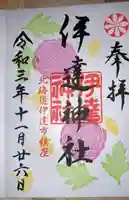 奉拝
伊達神社
北海道伊達市鎮座
令和三年十一月廿六日